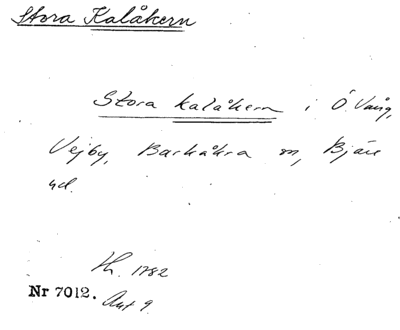 Stora Kalåkern
Stora kalåkern i Ö. Vång,
Vejby, Barkåkra sn, Bjäre
hd.
Lh. 1782
Nr 7012. Akt 9.